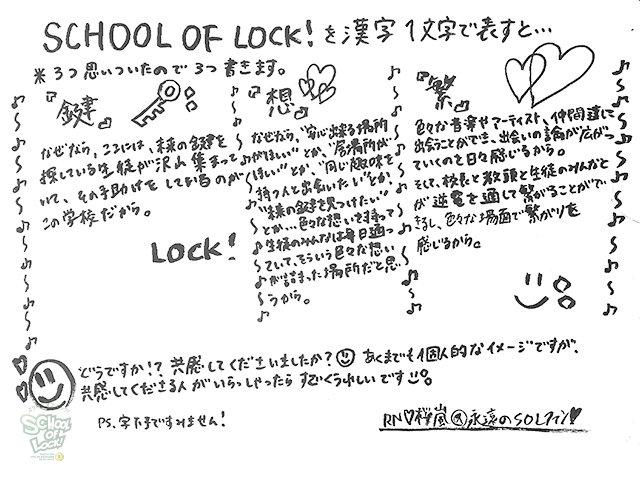 SCHOOL OF LOCK! を漢字1文字で表すと…
※3つ思いついたので3つ書きます。
"鍵"
なぜなら、ここには、未来の鍵を
探している生徒が沢山集まって
いて、その手助けをしてるのが
この学校だから。
LOCK!
"想"
なぜなら、"安心出来る場所
がほしい"とか、"居場所が
ほしい"とか、"同じ趣味を
持つ人と出会いたい"とか、
"未来の鍵を見つけたい"
とか…色々な想いを持って
生徒のみんなは毎日通っ
ていて、そういう色々な想い
が詰まった場所だと思
うから。
"繋"
色々な音楽やアーティスト、仲間達に
出会うことができ、出会いの輪が広がっ
ていくのを日々感じるから。
そして、校長と教頭と生徒のみんなと
が逆電を通して繋がることがで
きるし、色々な場面で繋がりを
感じるから。
どうですか!? 共感してくださいましたか? あくまでも個人的なイメージですが、
共感してくださる人がいらっしゃったらすごくうれしいです
P.S. 字下手ですみません!
RN♡桜嵐 永遠のSOLファン♥
SCHOOL OF LOCK!